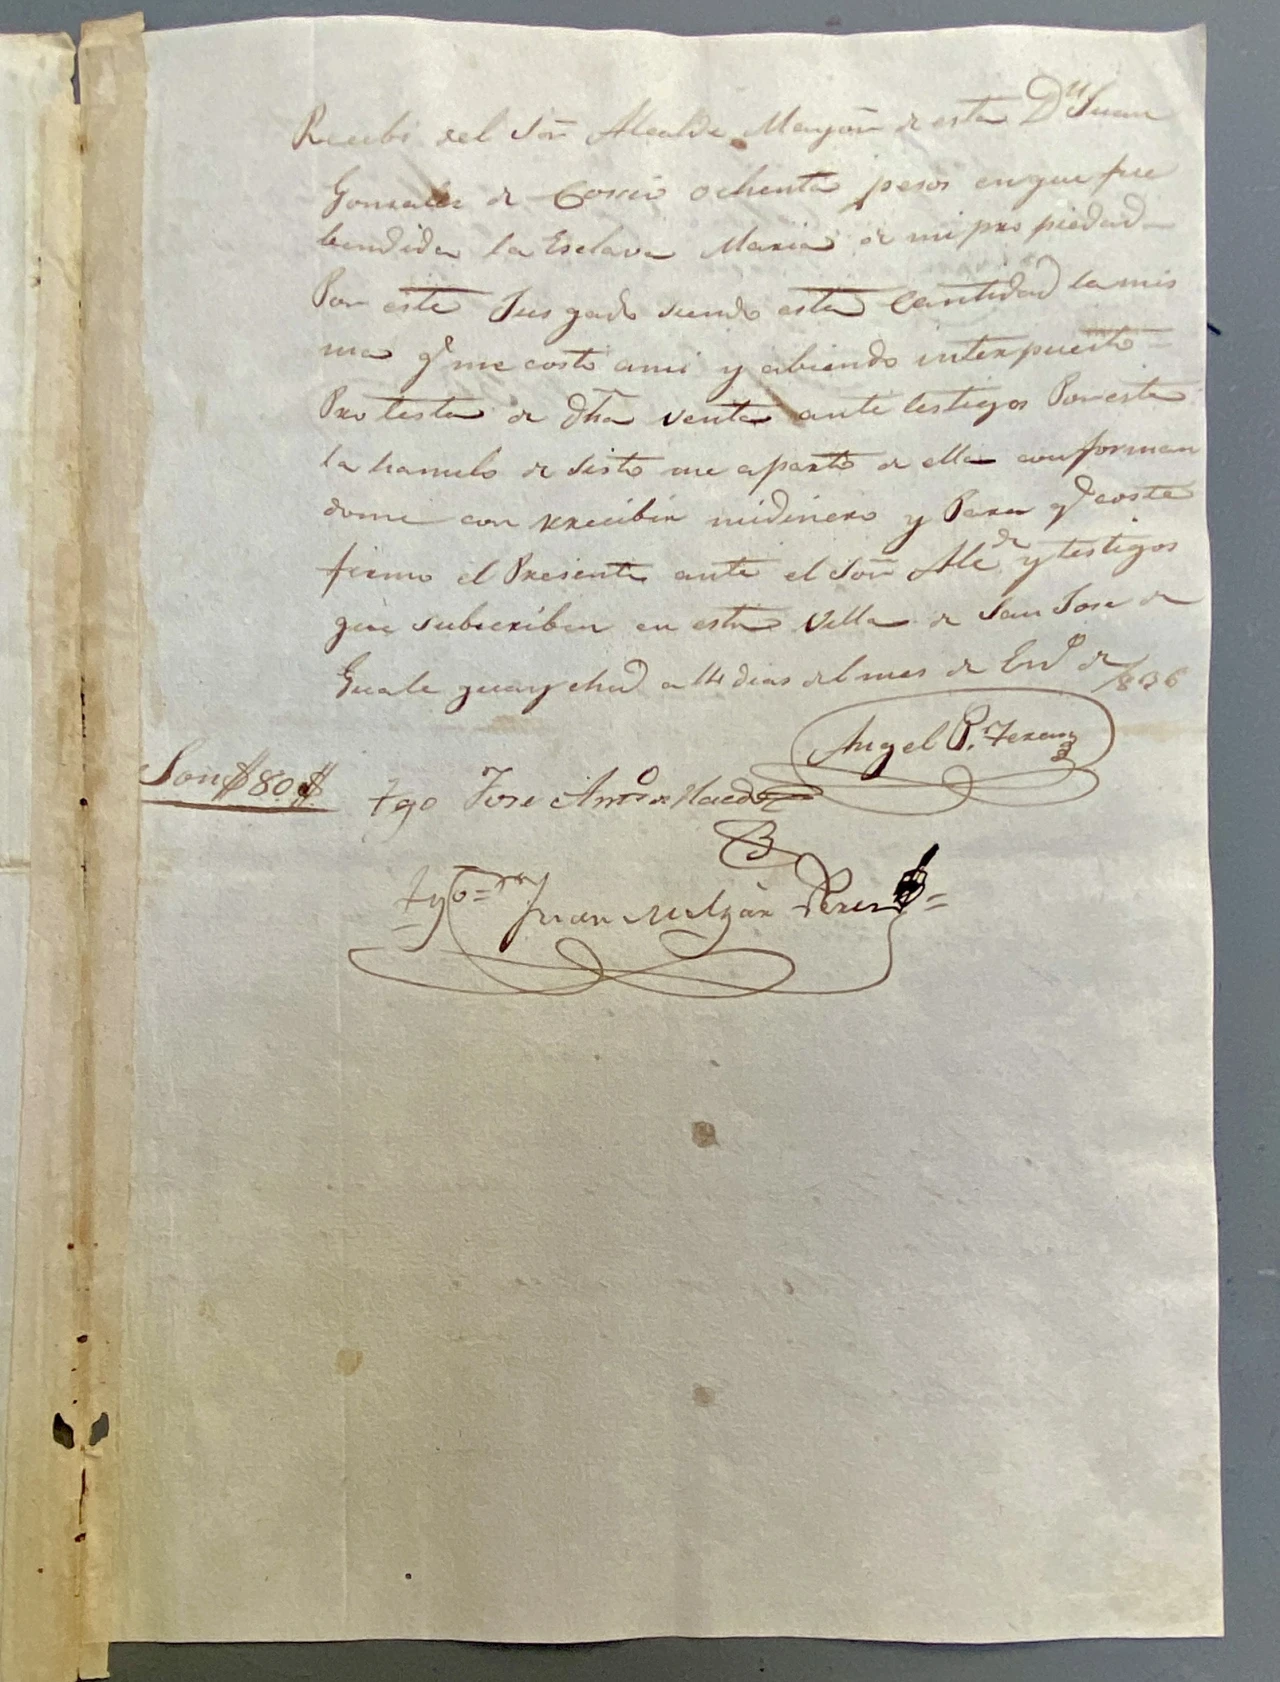 Recibi del Sor̃ Alcalde Mayor̃ de esta Dn Juan
Gonzales de Cossio ochenta pesos en que fue
bendida la Esclava Maria de mi propiedad
Por este Jusgado siendo esta Cantidad la mis
ma qe me costo ami y abiendo interpuesto
Protesta de dha venta ante testigos Por esta
la hanulo de sisto me aparto de ella conforman
dome con rrecibir mi dinero y Para qe coste
firmo el Presente ante el Sor̃ Alcde y testigos
que subscriben en esta Villa de San Jose de
Guale guaychu a 14 dias del mes de Eno de /836
Angel P. Feran
Son $ 80 $
tgo Jose Anto de Haedo
tgo = Juan Melchor Perez =